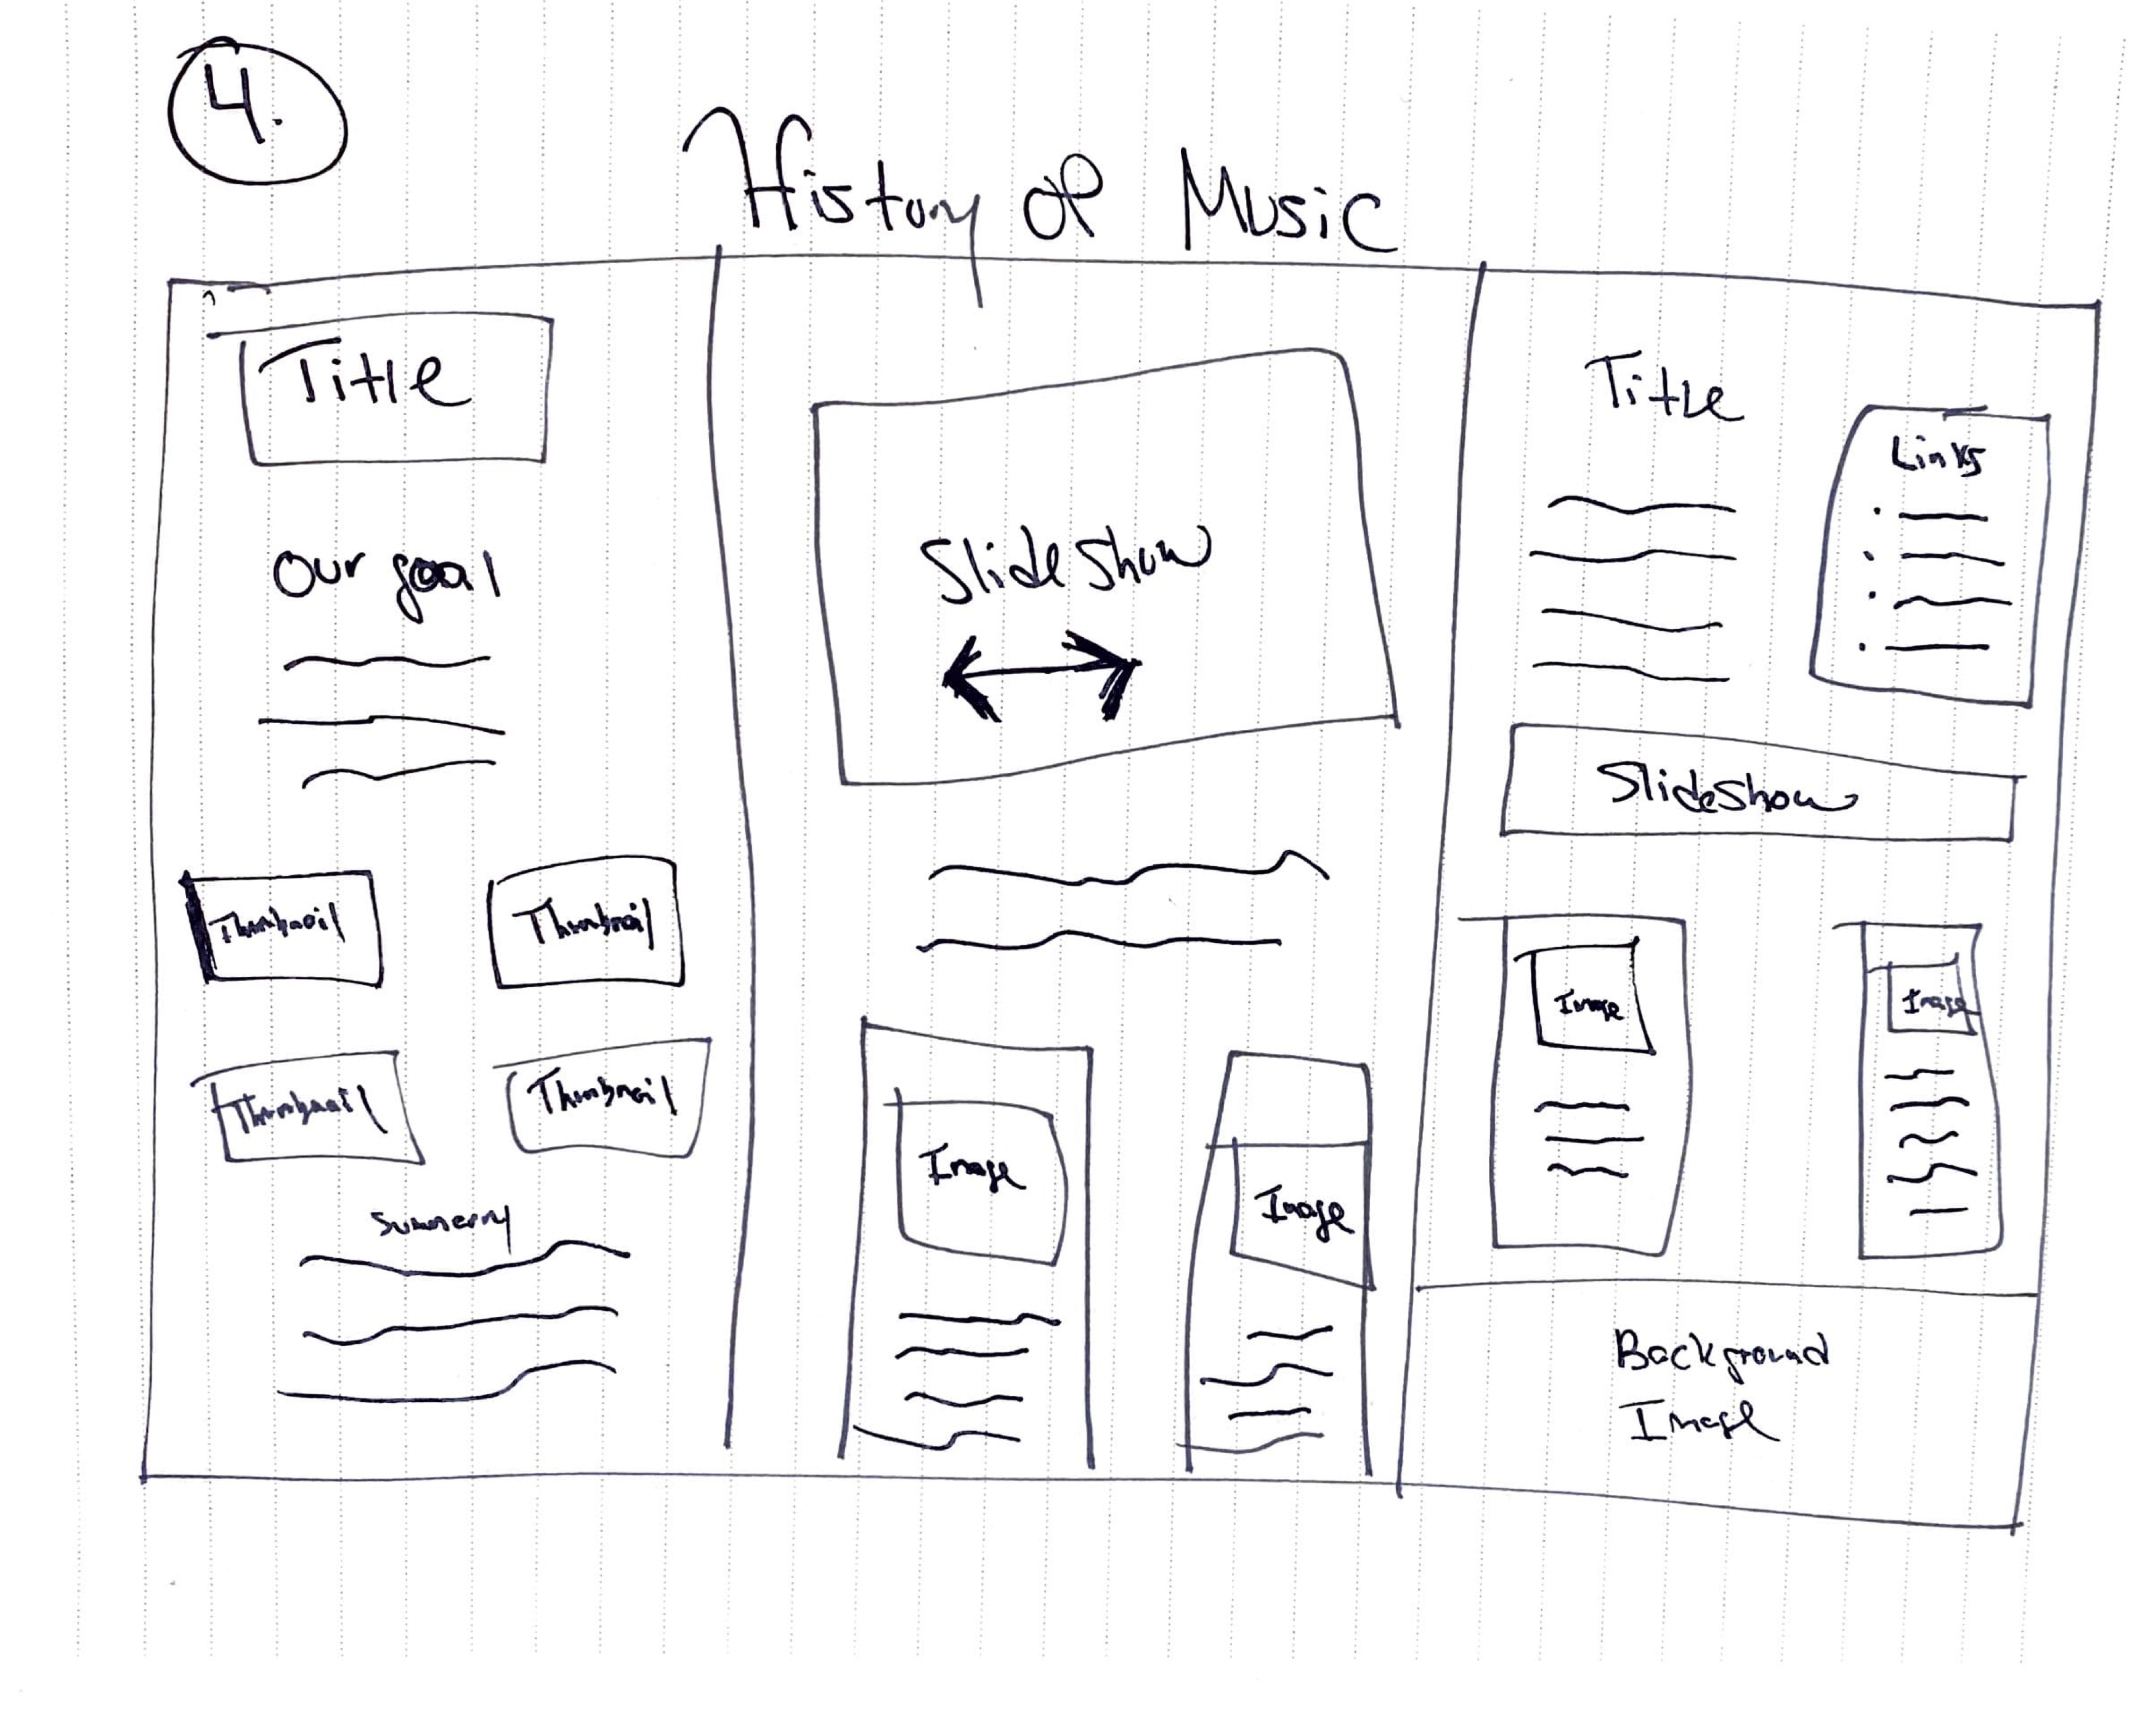 4.
History of Music
Title
Our goal
Thumbnail
Thumbnail
Thumbnail
Thumbnail
Summerry
Slide Show
Image
Image
Title
Links
Slideshow
Image
Image
Background
Image